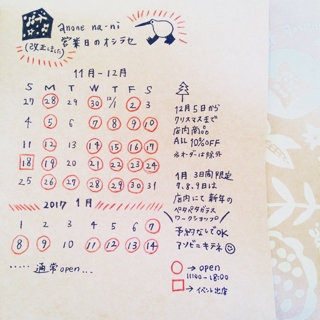 anone na-ni
営業日のオシラセ
(改正しました)
11月-12月
S M T W T F S
27 28 29 30 12/1 2 3
4 5 6 7 8 9 10
11 12 13 14 15 16 17
18 19 20 21 22 23 24
25 26 27 28 29 30 31
2017 1月
1 2 3 4 5 6 7
8 9 10 11 12 13 14
..... 通常open...
12月5日から
クリスマスまで
店内商品
ALL 10%OFF
※オーダーは除外
1月 3日間限定
7.8.9日は
店内にて新年の
ペタペタガラス
ワークショップ
予約なしでOK
アソビニキテネ
→ open
11:00-18:00
→ イベント出店